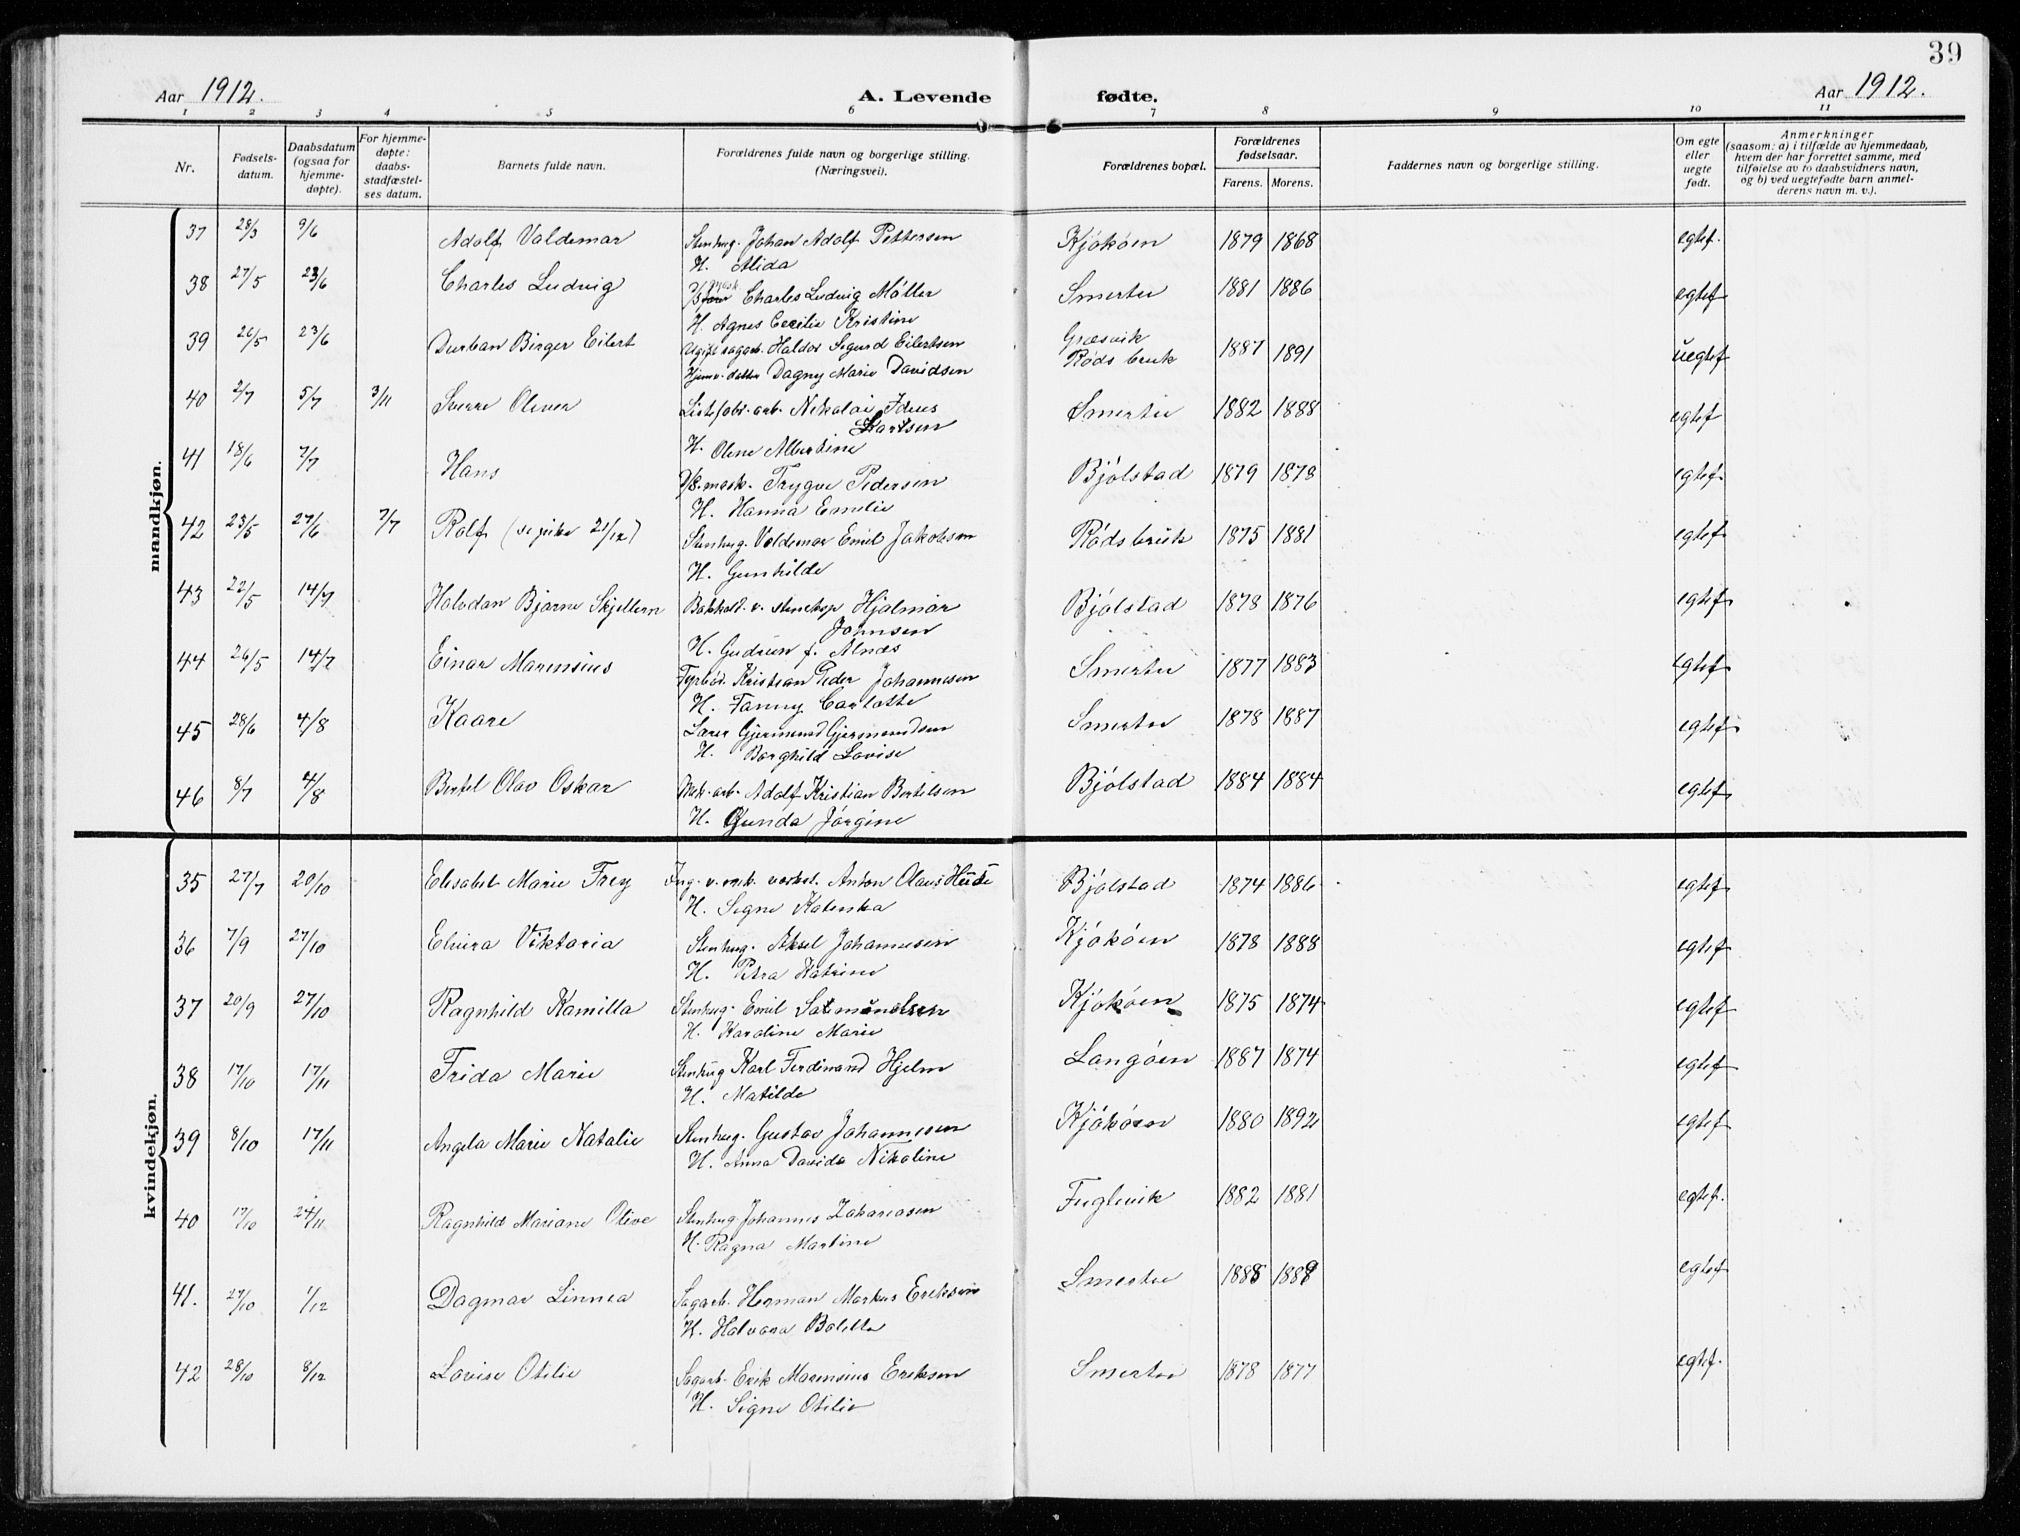 39
Aar 1912. A. Levende fødte. Aar 1912.
1 2 3 4 5 6 7 8 9 10 11
Nr. Fødsels-datum. Daabsdatum (ogsaa for hjemme-døpte). For hjemme-døpte: daabs-stadfæstel-ses datum. Barnets fulde navn. Forældrenes fulde navn og borgerlige stilling. (Næringsvei). Forældrenes bopæl. Forældrenes fødselsaar. Farens. Morens. Faddernes navn og borgerlige stilling. Om egte eller uegte født. Anmerkninger (saasom: a) i tilfælde av hjemmedaab, hvem der har forrettet samme, med tilføielse av to daabsvidners navn, og b) ved uegtefødte barn anmel-derens navn m. v.).
mandkjøn.
37 28/3 9/6 Adolf Valdemar Stenhug. Johan Adolf Pettersen Kjököen 1879 1868 egtef.
H. Alida
38 27/5 23/6 Charles Ludvig Charles Ludvig Möller Smertu 1881 1886 egtef
H. Agnes Cecilie Kristine
39 26/5 23/6 Durban Birger Eilert Ugift sagarb. Haldor Sigurd Eilertsen Græsvik Röds bruk 1887 1891 uegtef
Hjemv. datter Dagny Marie Davidsen
40 2/7 5/7 3/11 Sverre Oliver Listefabr. arb. Nikolai Ideus Smertu 1882 1888 egtef
Larsen
H. Oline Albertine
41 18/6 7/7 Hans D/S. mask. Trygve Pedersen Bjölstad 1879 1878 egtef.
H. Hanna Emelie
42 23/5 27/6 7/7 Rolf (se 21/12) Stenhug. Valdemar Emil Jakobsen Rödsbruk 1875 1881 egtef
H. Gunhilde
43 22/5 14/7 Halvdan Bjarne Skjellem Bokhold. v. stenhug Hjalmar Bjölstad 1878 1876 egtef
Johnsen
H. Gudrun f. Alnæs
44 26/5 14/7 Einar Marensius Fyrböd. Kristian Peder Johannesen Smertu 1877 1883 egtef
H. Fanny Carlotte
45 28/6 4/8 Kaare Lærer Gjermund Gjermundsen Smertu 1878 1887 egtef
H. Borghild Lovise
46 8/7 4/8 Bertel Olav Oskar Mek. arb. Adolf Kristian Bertelsen Bjölstad 1884 1884 egtef
H. Gunda Jörgine
kvindekjøn.
35 27/7 20/10 Elisabet Marie Frey Ing. v. mek. verkst. Anton Olaus Hüde Bjölstad 1874 1886 egtef
H. Signe Katinka
36 7/9 27/10 Elvira Viktoria Stenhug. Aksel Johannesen Kjököen 1878 1888 egtef
H. Petra Katrine
37 20/9 27/10 Ragnhild Kamilla Stenhug. Emil Salamonsen Kjököen 1875 1874 egtef
H. Karoline Marie
38 17/10 17/11 Frida Marie Stenhug Karl Ferdinand Hjelm Langöen 1887 1874 egtef
H. Matilde
39 8/10 17/11 Angela Marie Natalie Stenhug. Gustav Johannesen Kjököen 1880 1892 egtef
H. Anna Davida Nikoline
40 17/10 24/11 Ragnhild Mariane Olive Stenhug. Johannes Zakariasen Fuglevik 1882 1881 egtef.
H. Ragna Martine
41. 27/10 1/12 Dagmar Linnea Sagarb. Herman Markus Eriksen Smertu 1888 1889 egtef
H. Halvara Bolette
42 28/10 8/12 Lovise Otilie Sagarb. Erik Marensius Eriksen Smertu 1878 1877 egtef.
H. Signe Otilie